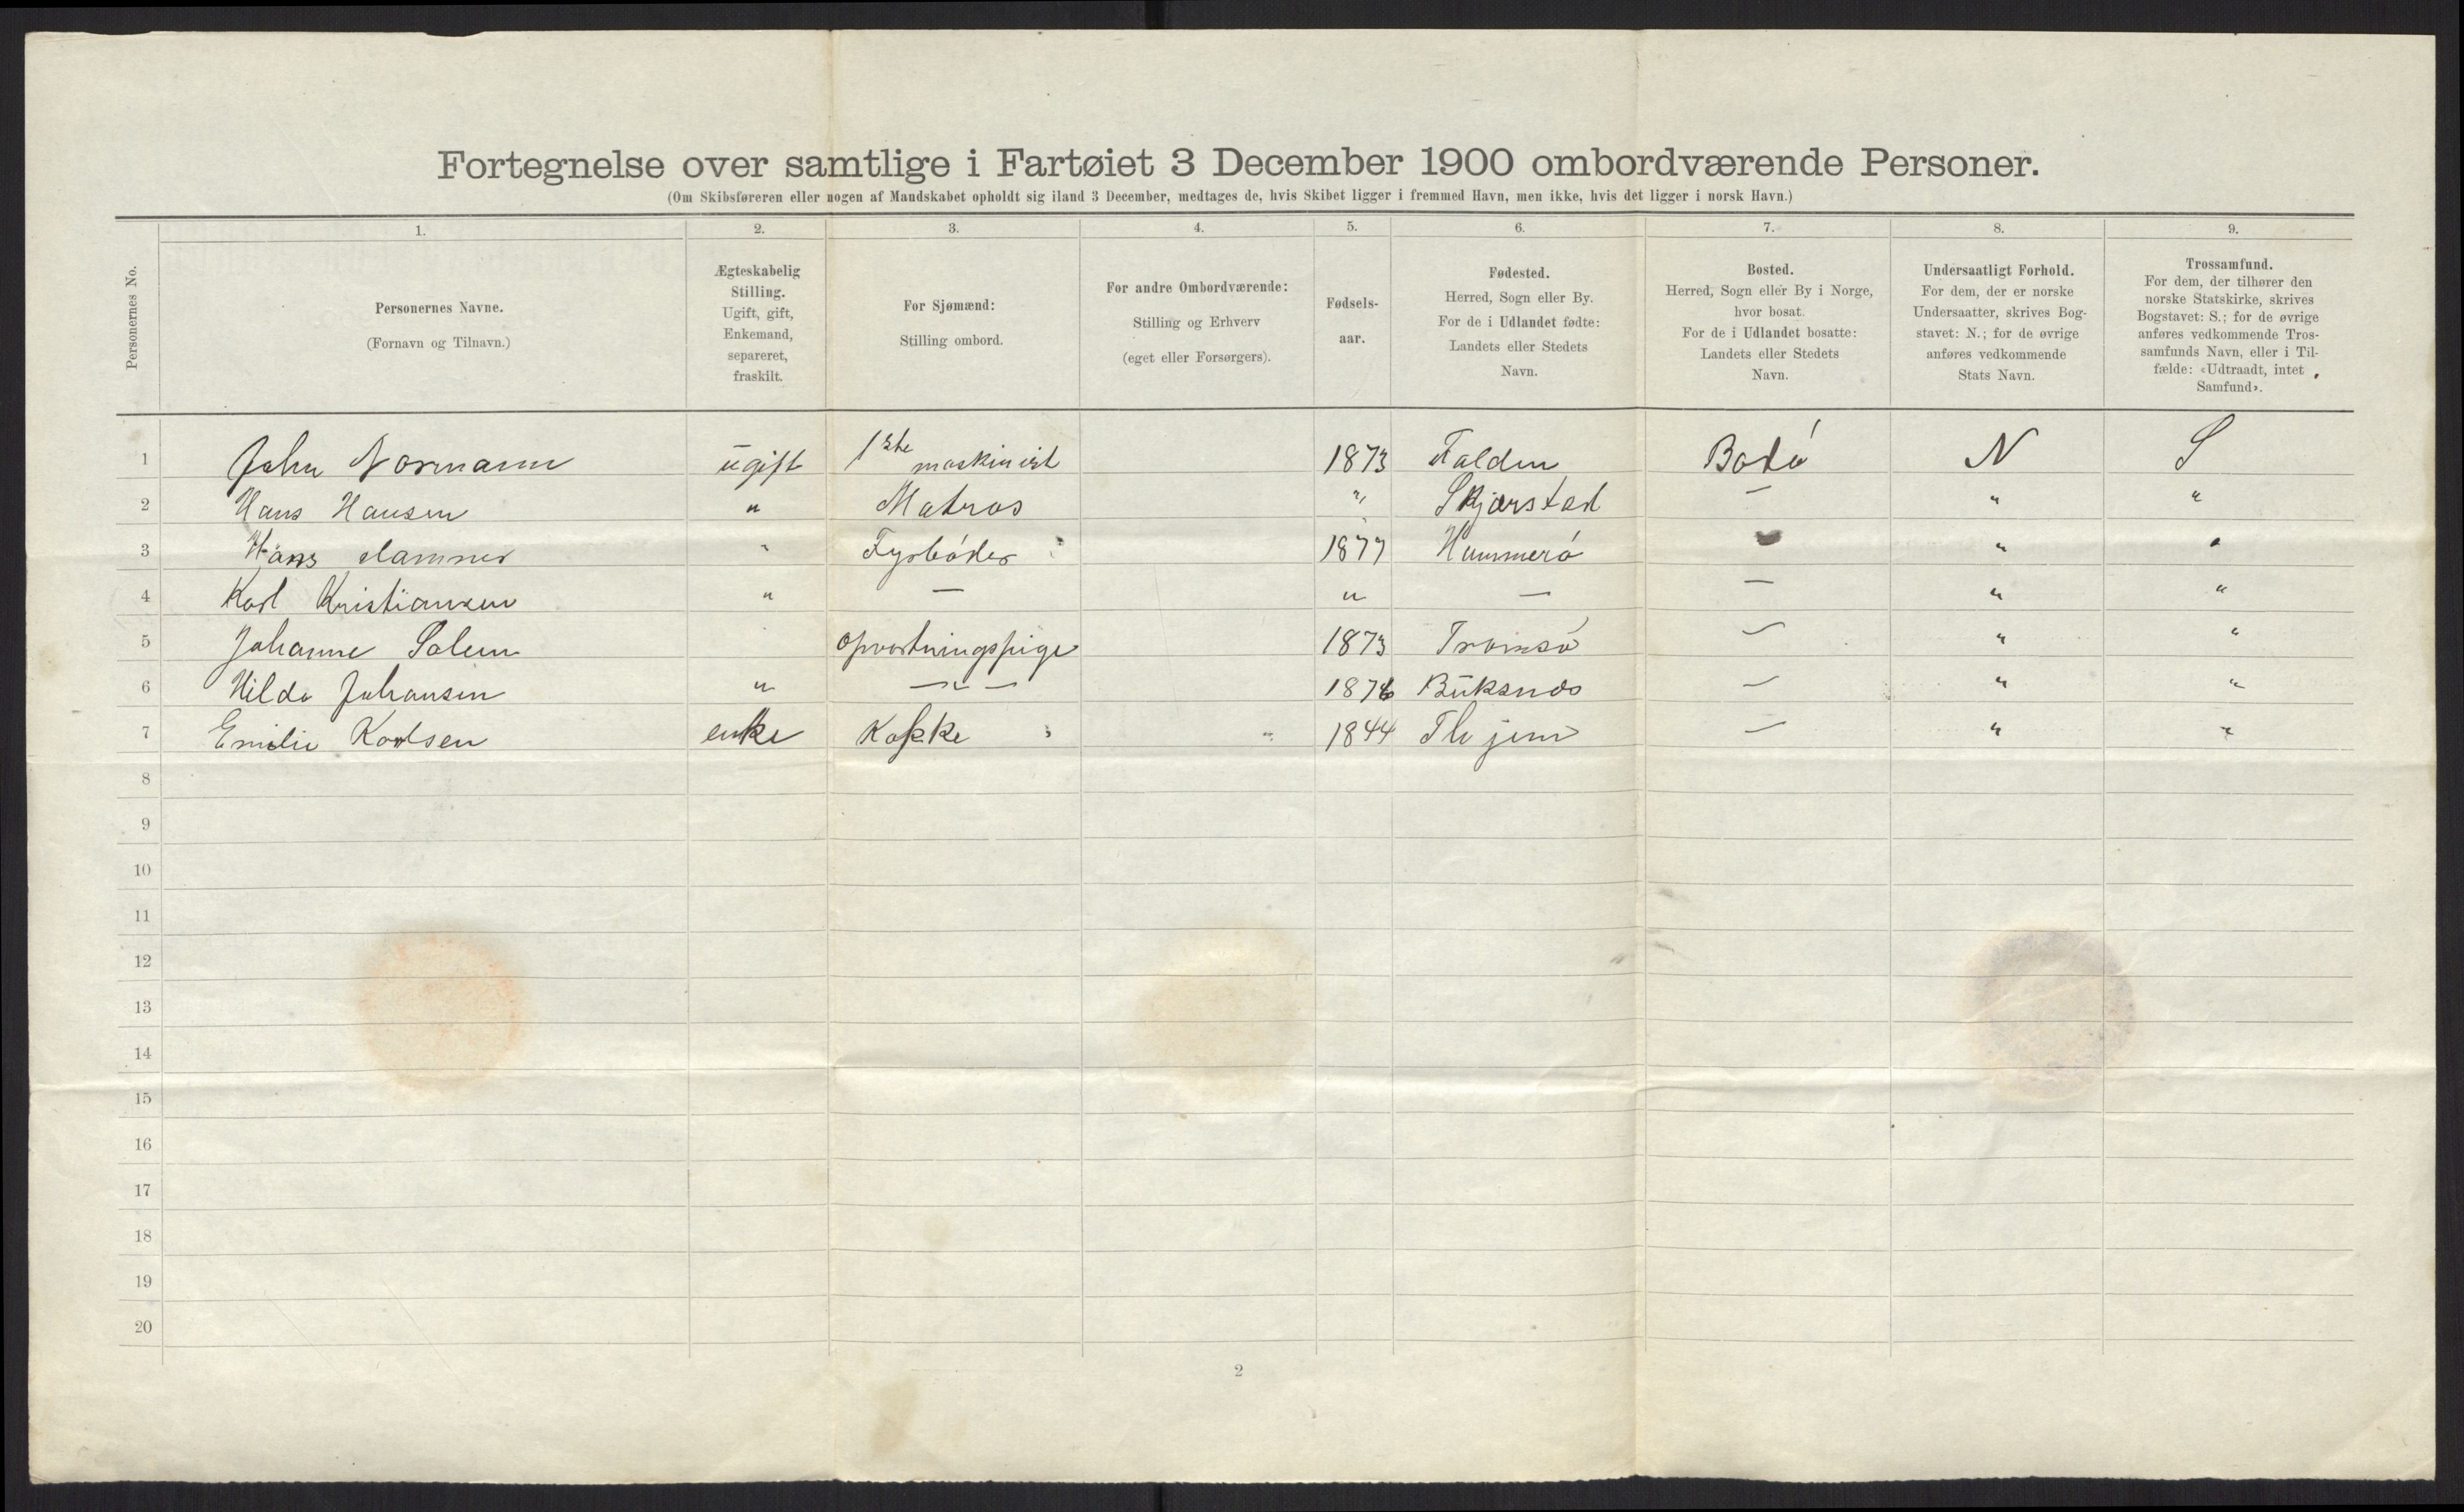 Fortegnelse over samtlige i Fartøiet 3 December 1900 ombordværende Personer.
(Om Skibsføreren eller nogen af Mandskabet opholdt sig iland 3 December, medtages de, hvis Skibet ligger i fremmed Havn, men ikke, hvis det ligger i norsk Havn.)
Personernes No.
1.
Personernes Navne.
(Fornavn og Tilnavn.)
2.
Ægteskabelig
Stilling.
Ugift, gift,
Enkemand,
separeret,
fraskilt.
3.
For Sjømænd:
Stilling ombord.
4.
For andre Ombordværende:
Stilling og Erhverv
(eget eller Forsørgers).
5.
Fødsels-
aar.
6.
Fødested.
Herred, Sogn eller By.
For de i Udlandet fødte:
Landets eller Stedets
Navn.
7.
Bosted.
Herred, Sogn eller By i Norge,
hvor bosat.
For de i Udlandet bosatte:
Landets eller Stedets
Navn.
8.
Undersaatligt Forhold.
For dem, der er norske
Undersaatter, skrives Bog-
stavet: N.; for de øvrige
anføres vedkommende
Stats Navn.
9.
Trossamfund.
For dem, der tilhører den
norske Statskirke, skrives
Bogstavet: S.; for de øvrige
anføres vedkommende Tros-
samfunds Navn, eller i Til-
fælde: «Udtraadt, intet
Samfund».
1 John Normann ugift 1ste maskinist 1873 Folden Bodø N S
2 Hans Hansen " Matros " Skjerstad — " "
3 Hans Hammer " Fyrbøder 1877 Hammerø " "
4 Karl Kristiansen " — " — — " "
5 Johanne opvartningspige 1873 Tromsø — " "
6 Hilda Johansen " —"— 1876 Buksnes — " "
7 Emilie Karlsen enke Kokke 1844 — " "
8
9
10
11
12
13
14
15
16
17
18
19
20
2